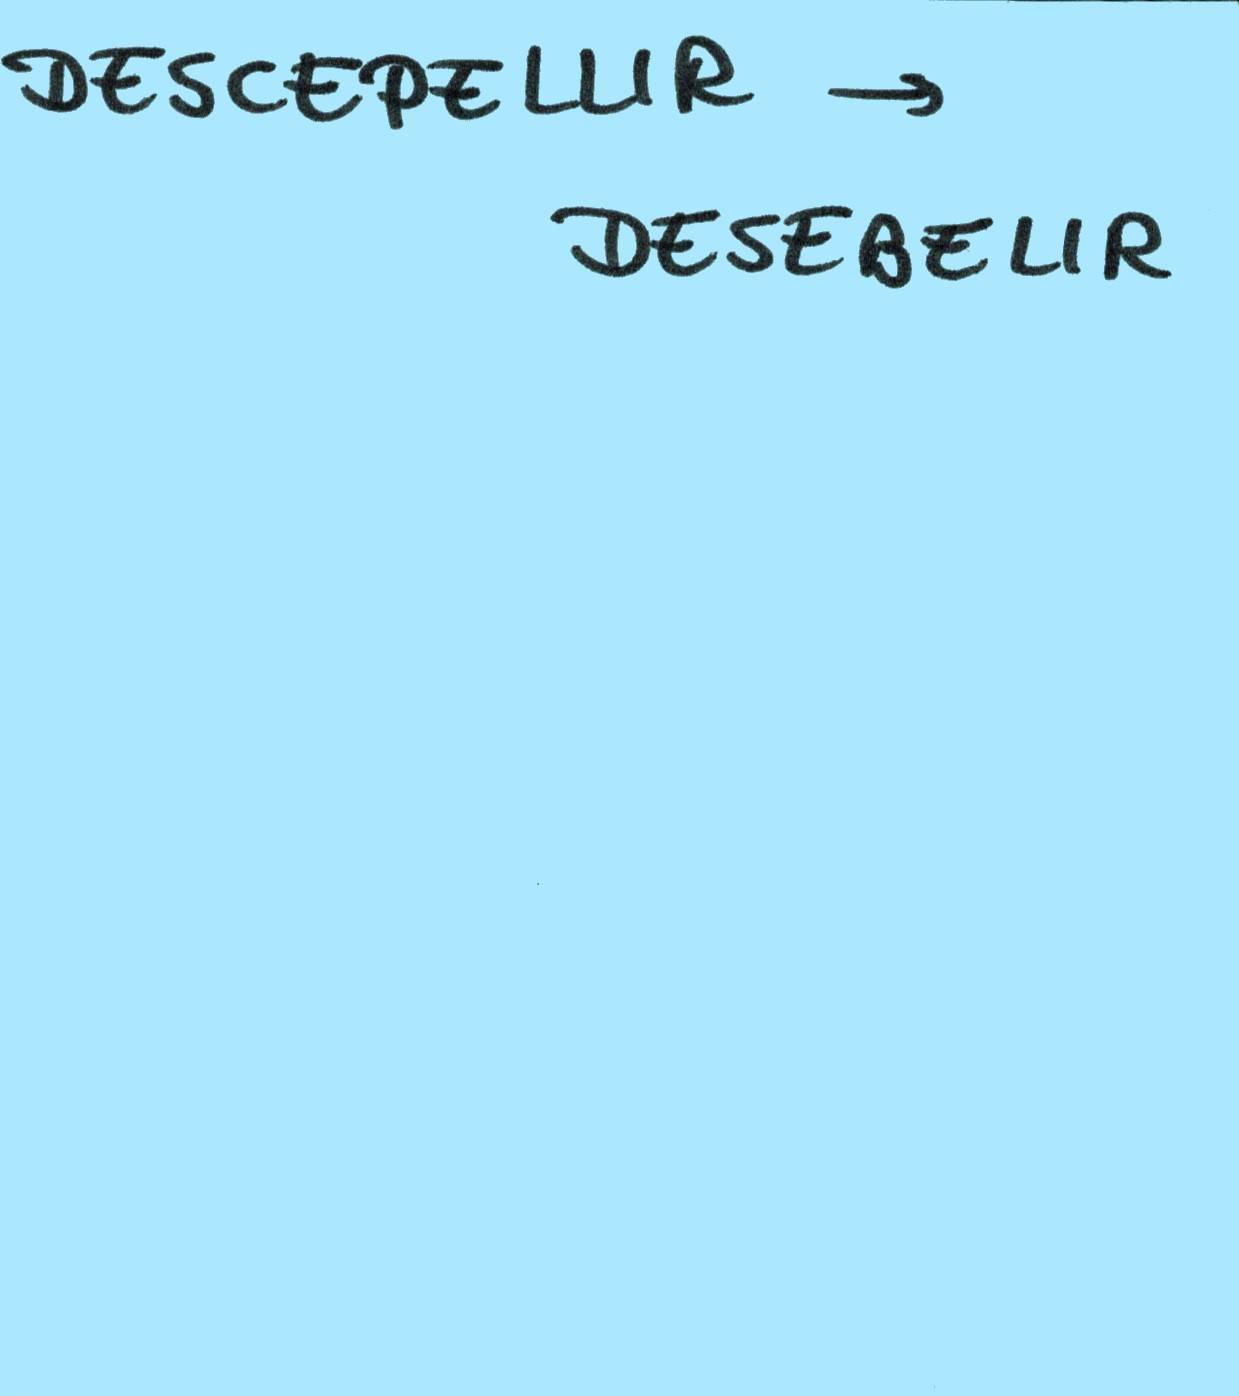 DESCEPELLIR →
DESEBELIR